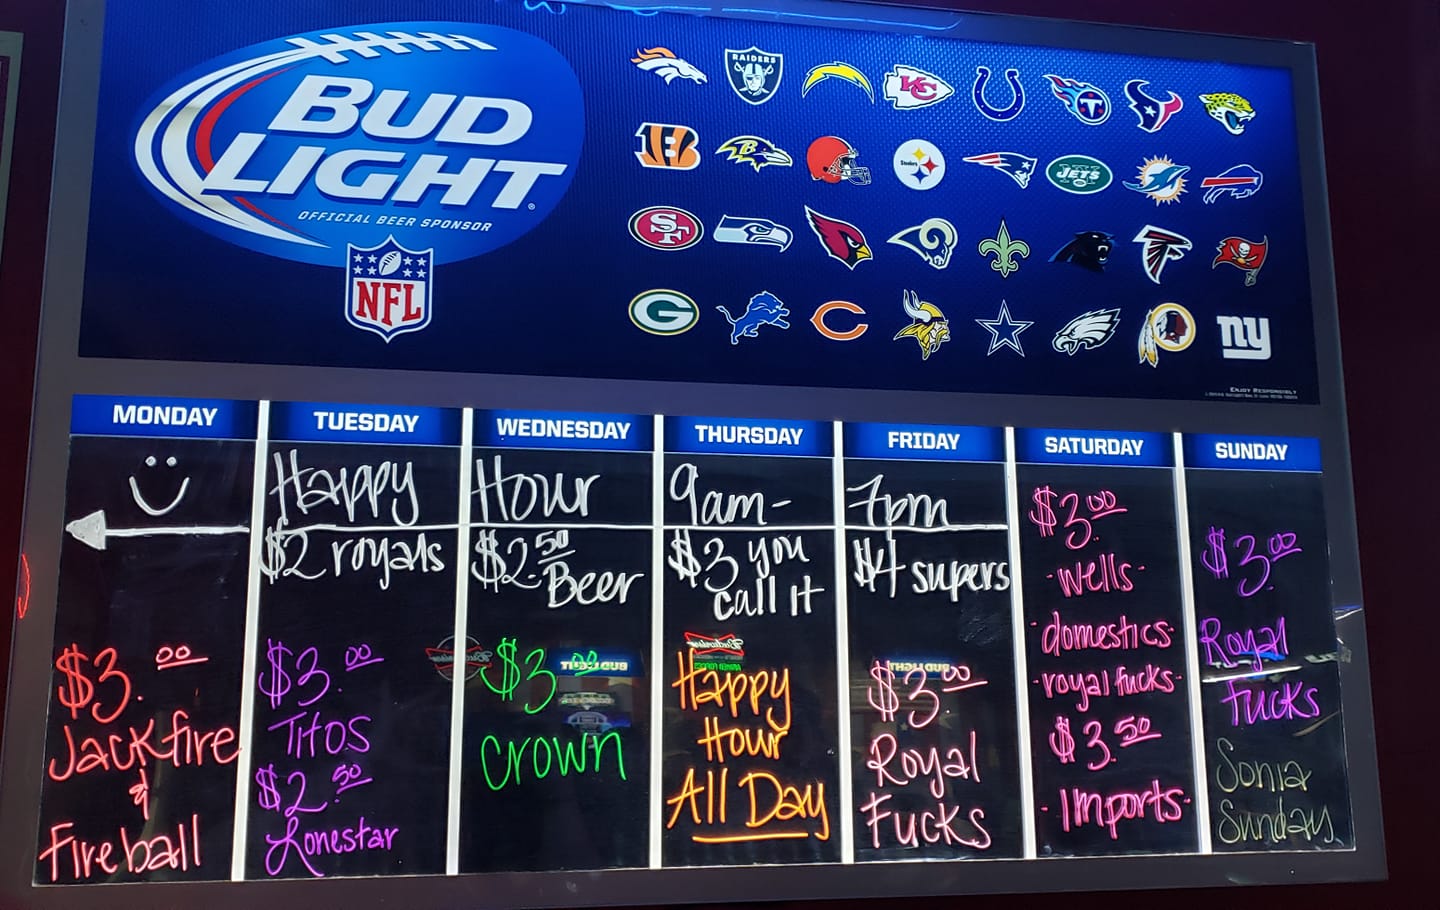 BUD
LIGHT®
OFFICIAL BEER SPONSOR
NFL
RAIDERS
KC
T
B
B
Steelers
JETS
SF
G
C
ny
ENJOY RESPONSIBLY
MONDAY TUESDAY WEDNESDAY THURSDAY FRIDAY SATURDAY SUNDAY
Happy Hour 9am- 7pm
$2 royals
$2.50
Beer
$3 you
call it
$4 supers
$3.00
Jackfire
&
Fireball
$3.00
Titos
$2.50
Lonestar
$3.00
Crown
Budweiser
BUD LIGHT
Happy
Hour
All Day
BUD LIGHT
$3.00
Royal
Fucks
$3.00
·wells·
·domestics·
·royal fucks·
$3.50
·Imports·
$3.00
Royal
Fucks
Sonia
Sunday